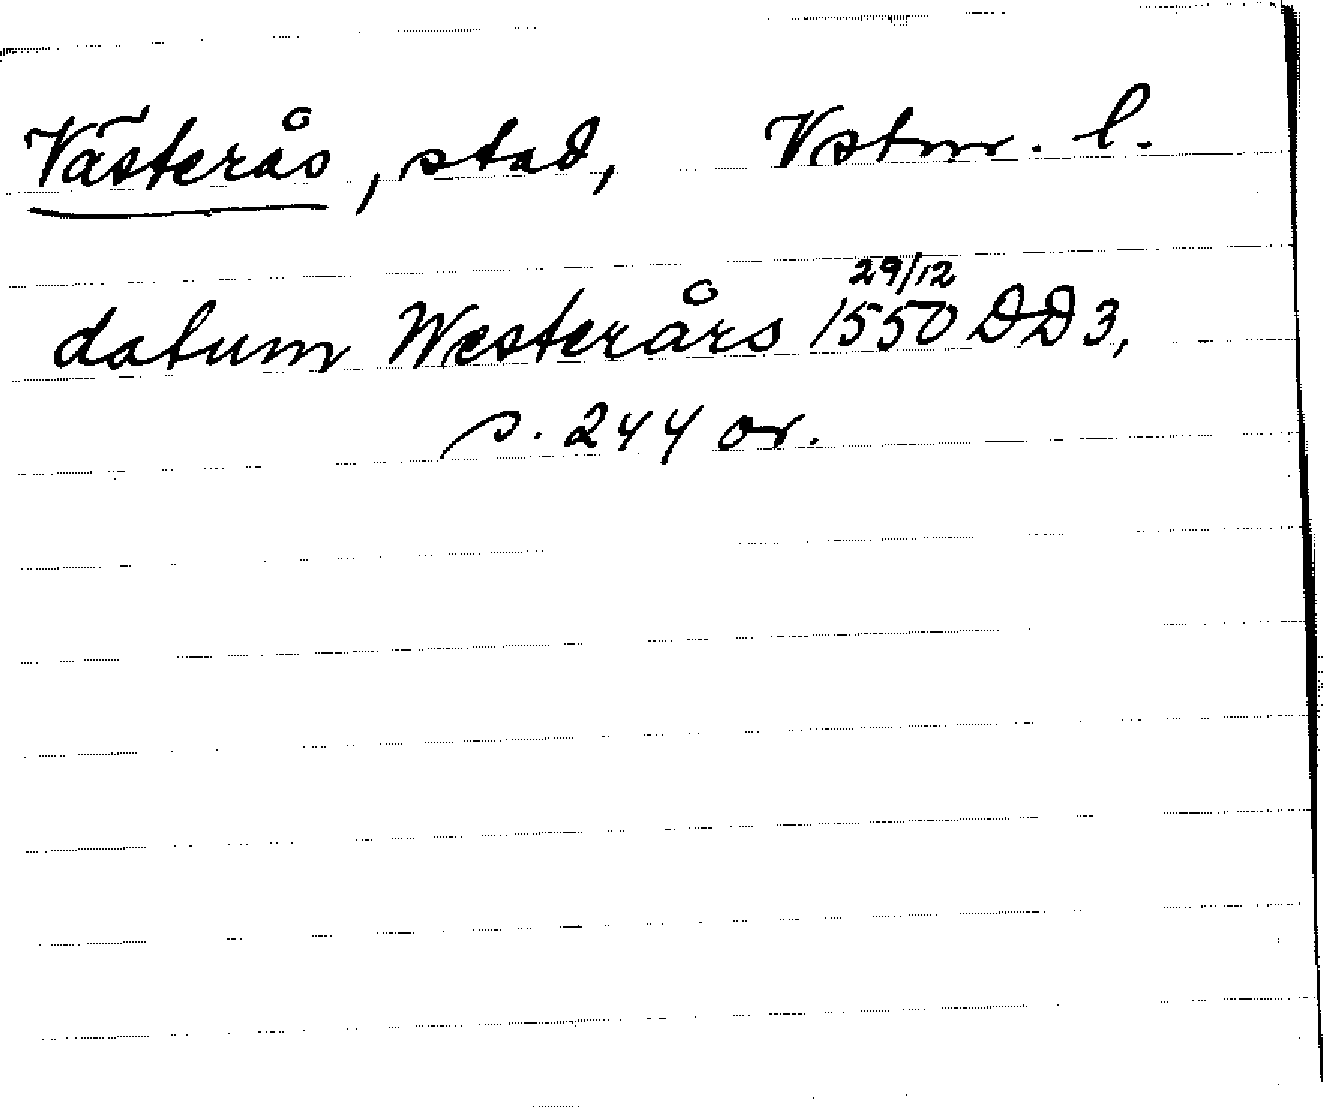 Västerås, stad, Vstm. l.
datum Westerårs 29/12 1550 DD3,
s. 244 or.